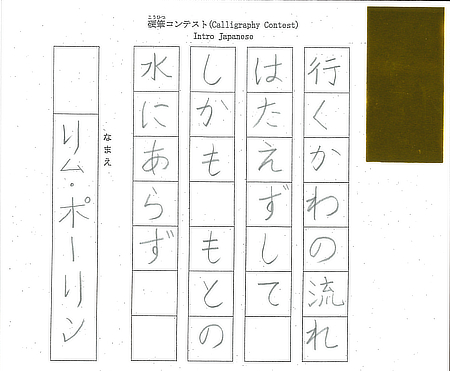 こうひつ
硬筆コンテスト(Calligraphy Contest)
Intro Japanese
行くかわの流れ
はたえずして
しかも もとの
水にあらず
なまえ
リム・ポーリン